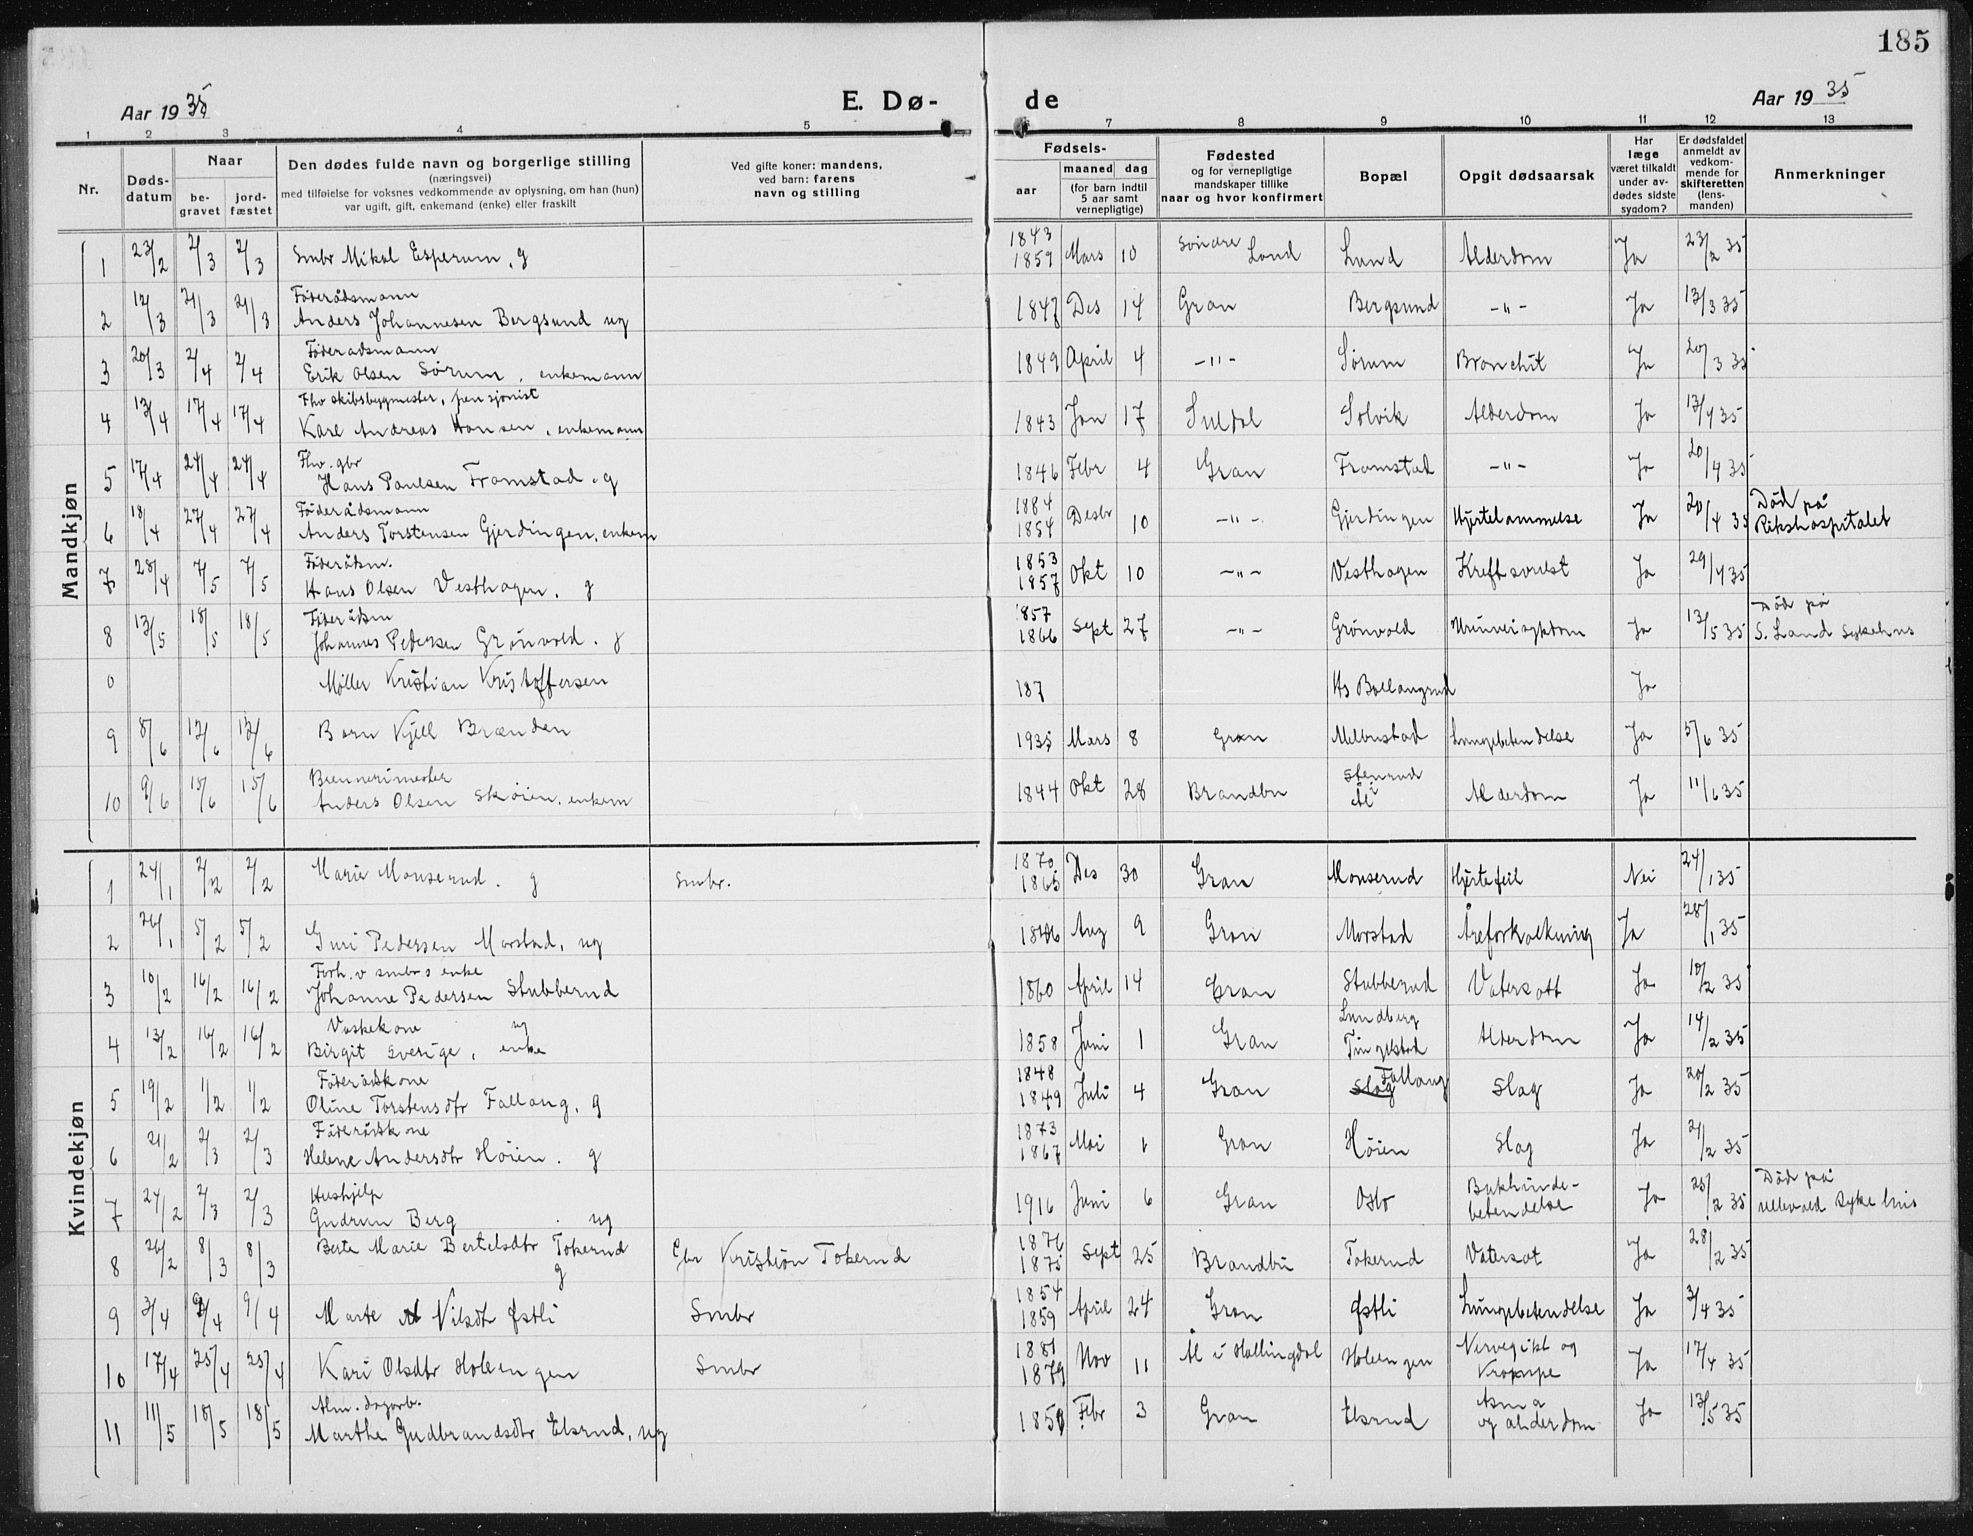 185
Aar 1935 E. Dø- de Aar 1935
1 2 3 4 5 6 7 8 9 10 11 12 13
Nr. Døds-datum Naar be-gravet jord-fæstet Den dødes fulde navn og borgerlige stilling (næringsvei) med tilføielse for voksnes vedkommende av oplysning, om han (hun) var ugift, gift, enkemand (enke) eller fraskilt Ved gifte koner: mandens, ved barn: farens navn og stilling Fødsels- aar maaned dag (for barn indtil 5 aar samt vernepligtige) Fødested og for vernepligtige mandskaper tillike naar og hvor konfirmert Bopæl Opgit dødsaarsak Har læge været tilkaldt under av-dødes sidste sygdom? Er dødsfaldet anmeldt av vedkom-mende for skifteretten (lens-manden) Anmerkninger
Mandkjøn
1 23/2 2/3 2/3 Smbr Mikal Esperum, g 1843 1859 Mars 10 Søndre Land Lund Alderdom Ja 23/2 35
2 12/3 21/3 21/3 Føderådsmann Anders Johannesen Bergsund ug 1847 Des 14 Gran Bergsund -"- Ja 13/3 35
3 20/3 2/4 2/4 Føderadsmann Erik Olsen Sørum, enkemann 1849 April 4 -"- Sørum Bronchit Ja 20/3 35
4 13/4 17/4 17/4 Fhv skibsbygmester, pensjonist Karl Andreas Hansen, enkemann 1843 Jan 17 Suldal Solvik Alderdom Ja 13/4 35
5 17/4 24/4 24/4 Fhv. gbr Hans Paulsen Framstad, g 1846 Febr 4 Gran Framstad -"- Ja 20/4 35
6 18/4 27/4 27/4 Føderådsmann Anders Torstensen Gjerdingen, enkem 1884 1854 Desbr 10 -"- Gjerdingen Hjertelammelse Ja 20/4 35 Død på Rikshospitalet
7 28/4 7/5 7/5 Føderåsm. Hans Olsen Vesthagen. g 1853 1857 Okt 10 -"- Vesthagen Kreftsvulst Ja 29/4 35
8 13/5 18/5 18/5 Føderådsm Johannes Pedersen Grønvold. g 1857 1866 Sept 27 -"- Grønvold Urinveisykdom Ja 13/5 35 Død på S. Land Sykehus
0 Møller Kristian Kristoffersen 187 Hs Ballangrud Ja
9 8/6 12/6 12/6 Barn Kjell Brænden 1935 Mars 8 Gran Melbustad Lungebetendelse Ja 5/6 35
10 9/6 15/6 15/6 Brennerimester Anders Olsen Skøien, enkem 1844 Okt 28 Brandbu Stenrud i Ål Alderdom Ja 11/6 35
Kvindekjøn
1 24/1 2/2 2/2 Marie Monserud. g Smbr. 1870 1865 Des 30 Gran Monserud Hjertefeil Nei 24/1 35
2 26/1 5/2 5/2 Guri Pedersen Morstad, ug 1846 Aug 9 Gran Morstad Åreforkalkning Ja 28/1 35
3 10/2 16/2 16/2 Forh. v smbrs enke Johanne Pedersen Stubberud 1860 April 14 Gran Stubberud Vatersott Ja 10/2 35
4 13/2 16/2 16/2 Vaskekone ug Birgit Sverige, enke 1858 Juni 1 Gran Lundberg Tingelstad Alderdom Ja 14/2 35
5 19/2 1/2 1/2 Føderådskone Oline Torstensdtr Fallang, g 1848 1849 Juli 4 Gran Slag Fallang Slag Ja 20/2 35
6 21/2 2/3 2/3 Føderådskone Helene Andersdtr Høien. g 1873 1867 Mai 1 Gran Høien Slag Ja 21/2 35
7 24/2 2/3 2/3 Hushjelp Gudrun Berg. ug 1916 Juni 6 Gran Oslo Bukhinde-betendelse Ja 25/2 35 Død på Ullevold Sykehus
8 26/2 8/3 8/3 Berte Marie Bertelsdtr Tokerud g Gbr Kristian Tokerud 1876 1875 Sept 25 Brandbu Tokerud Vatersot Ja 28/2 35
9 3/4 9/4 9/4 Marte Nilsdtr Østli Smbr 1854 1859 April 24 Gran Østli Lungebetendelse Ja 3/4 35
10 17/4 25/4 25/4 Kari Olsdtr Holsengen Smbr 1881 1879 Nov 11 Ål i Hallingdal Holsengen Nervegikt og Ja 17/4 35
11 11/5 18/5 18/5 Alm. dagarb. Marthe Gudbrandsdtr Elsrud, ug 1851 Febr 3 Gran Elsrud Asma og alderdom Ja 13/5 35